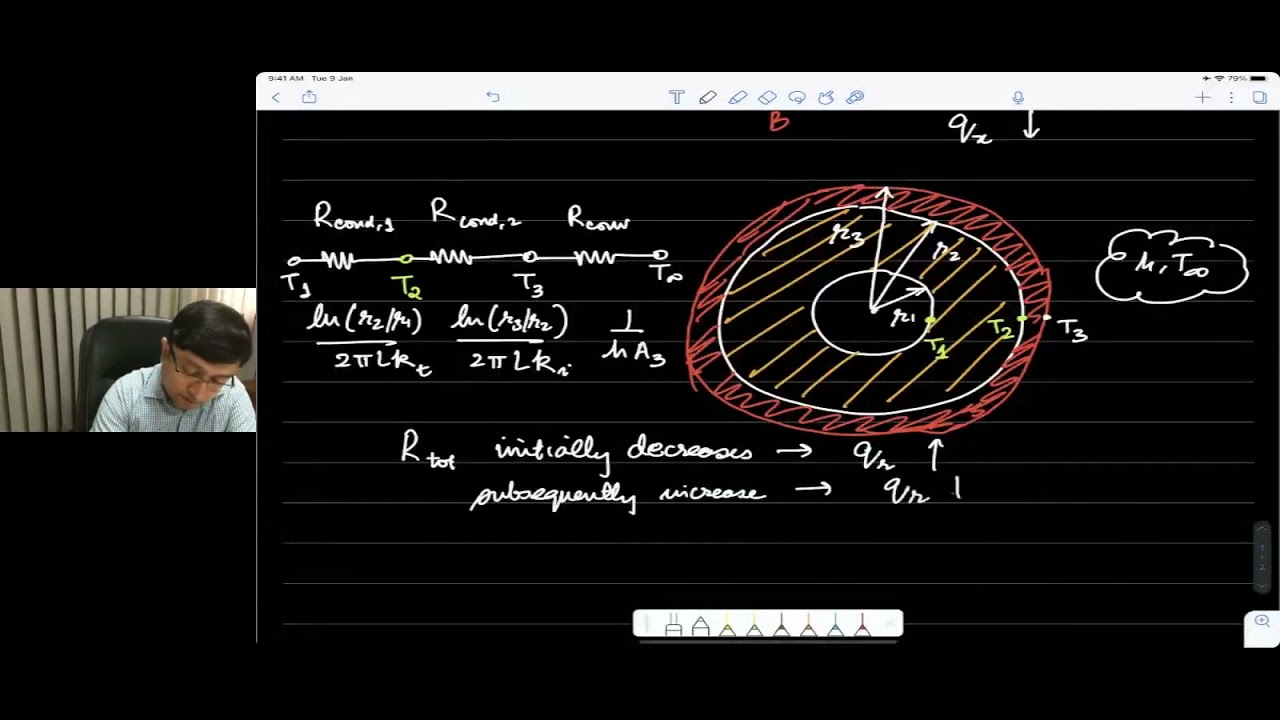 9:41 AM Tue 9 Jan
79%
B
qₓ ↓
R_cond,1 R_cond,2 R_conv
T₁ T₂ T₃ T∞
ln(r₂/r₁) ln(r₃/r₂) 1
2πLkₜ 2πLkᵢ hA₃
r₃ r₂ r₁
T₁ T₂ T₃
h, T∞
R_tot initially decreases → qᵣ ↑
subsequently increase → qᵣ |
1
2